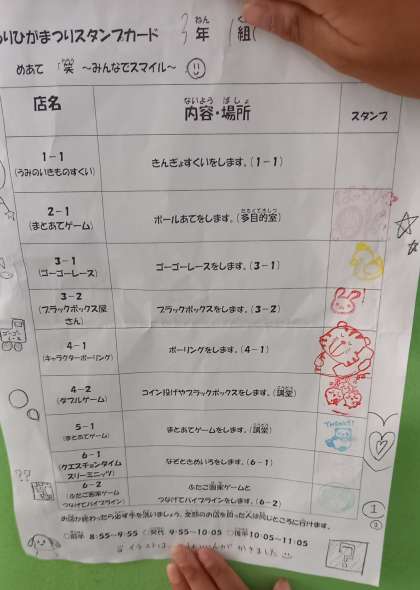 りひがまつりスタンプカード 3年 1組
めあて 「笑 ～みんなでスマイル～
店名 内容・場所 スタンプ
1-1
(うみのいきものすくい)
きんぎょすくいをします。(1-1)
2-1
(まとあてゲーム)
ボールあてをします。(多目的室)
3-1
(ゴーゴーレース)
ゴーゴーレースをします。(3-1)
3-2
(ブラックボックス屋
さん)
ブラックボックスをします。(3-2)
4-1
(キャラクターボーリング)
ボーリングをします。(4-1)
4-2
(ダブルゲーム)
コイン投げやブラックボックスをします。(講堂)
5-1
(まとあてゲーム)
まとあてゲームをします。(講堂)
THANKS!
6-1
(クエスチョンタイム
スリーミニッツ)
なぞときめいろをします。(6-1)
6-2
(ふたご国家ゲーム
つなげてパイプライン)
ふたご国家ゲームと
つなげてパイプラインをします。(6-2)
お店が終わったら必ず手を洗いましょう。
○前半 8:55~9:55 ○交代 9:55~10:05 ○後半10:05~11:05